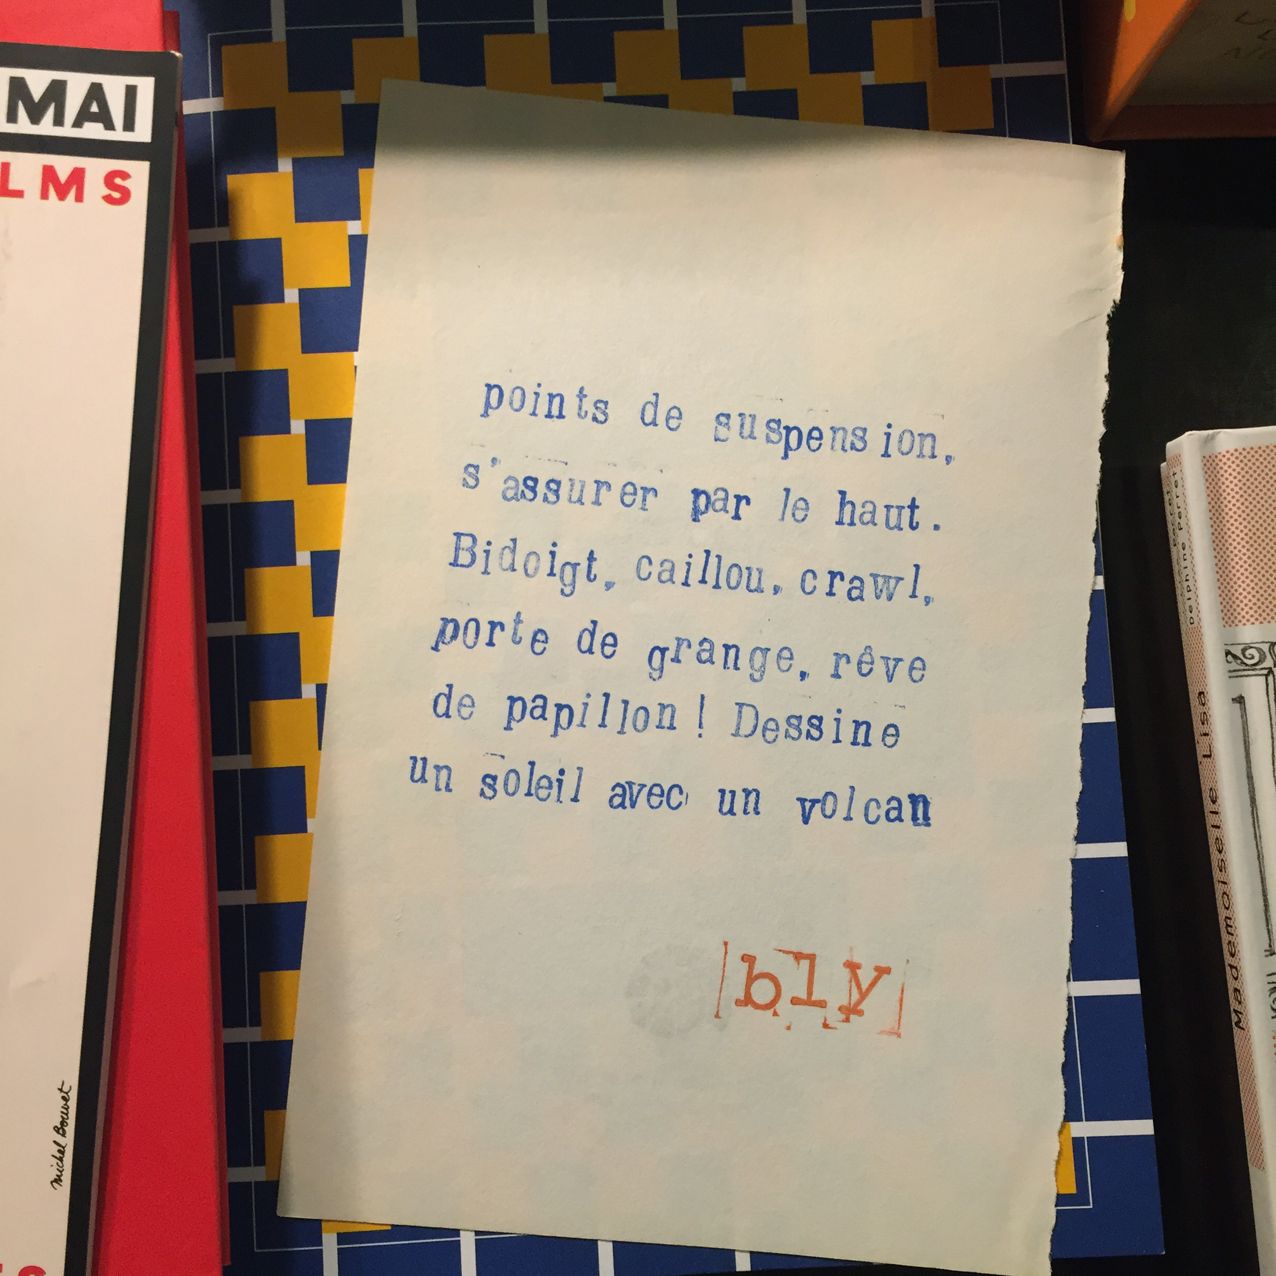 MAI
LMS
points de suspension,
s'assurer par le haut.
Bidoigt, caillou, crawl,
porte de grange, rêve
de papillon ! Dessine
un soleil avec un volcan
|bly|
Michel Bouvet
Mademoiselle Lisa
Delphine Perret